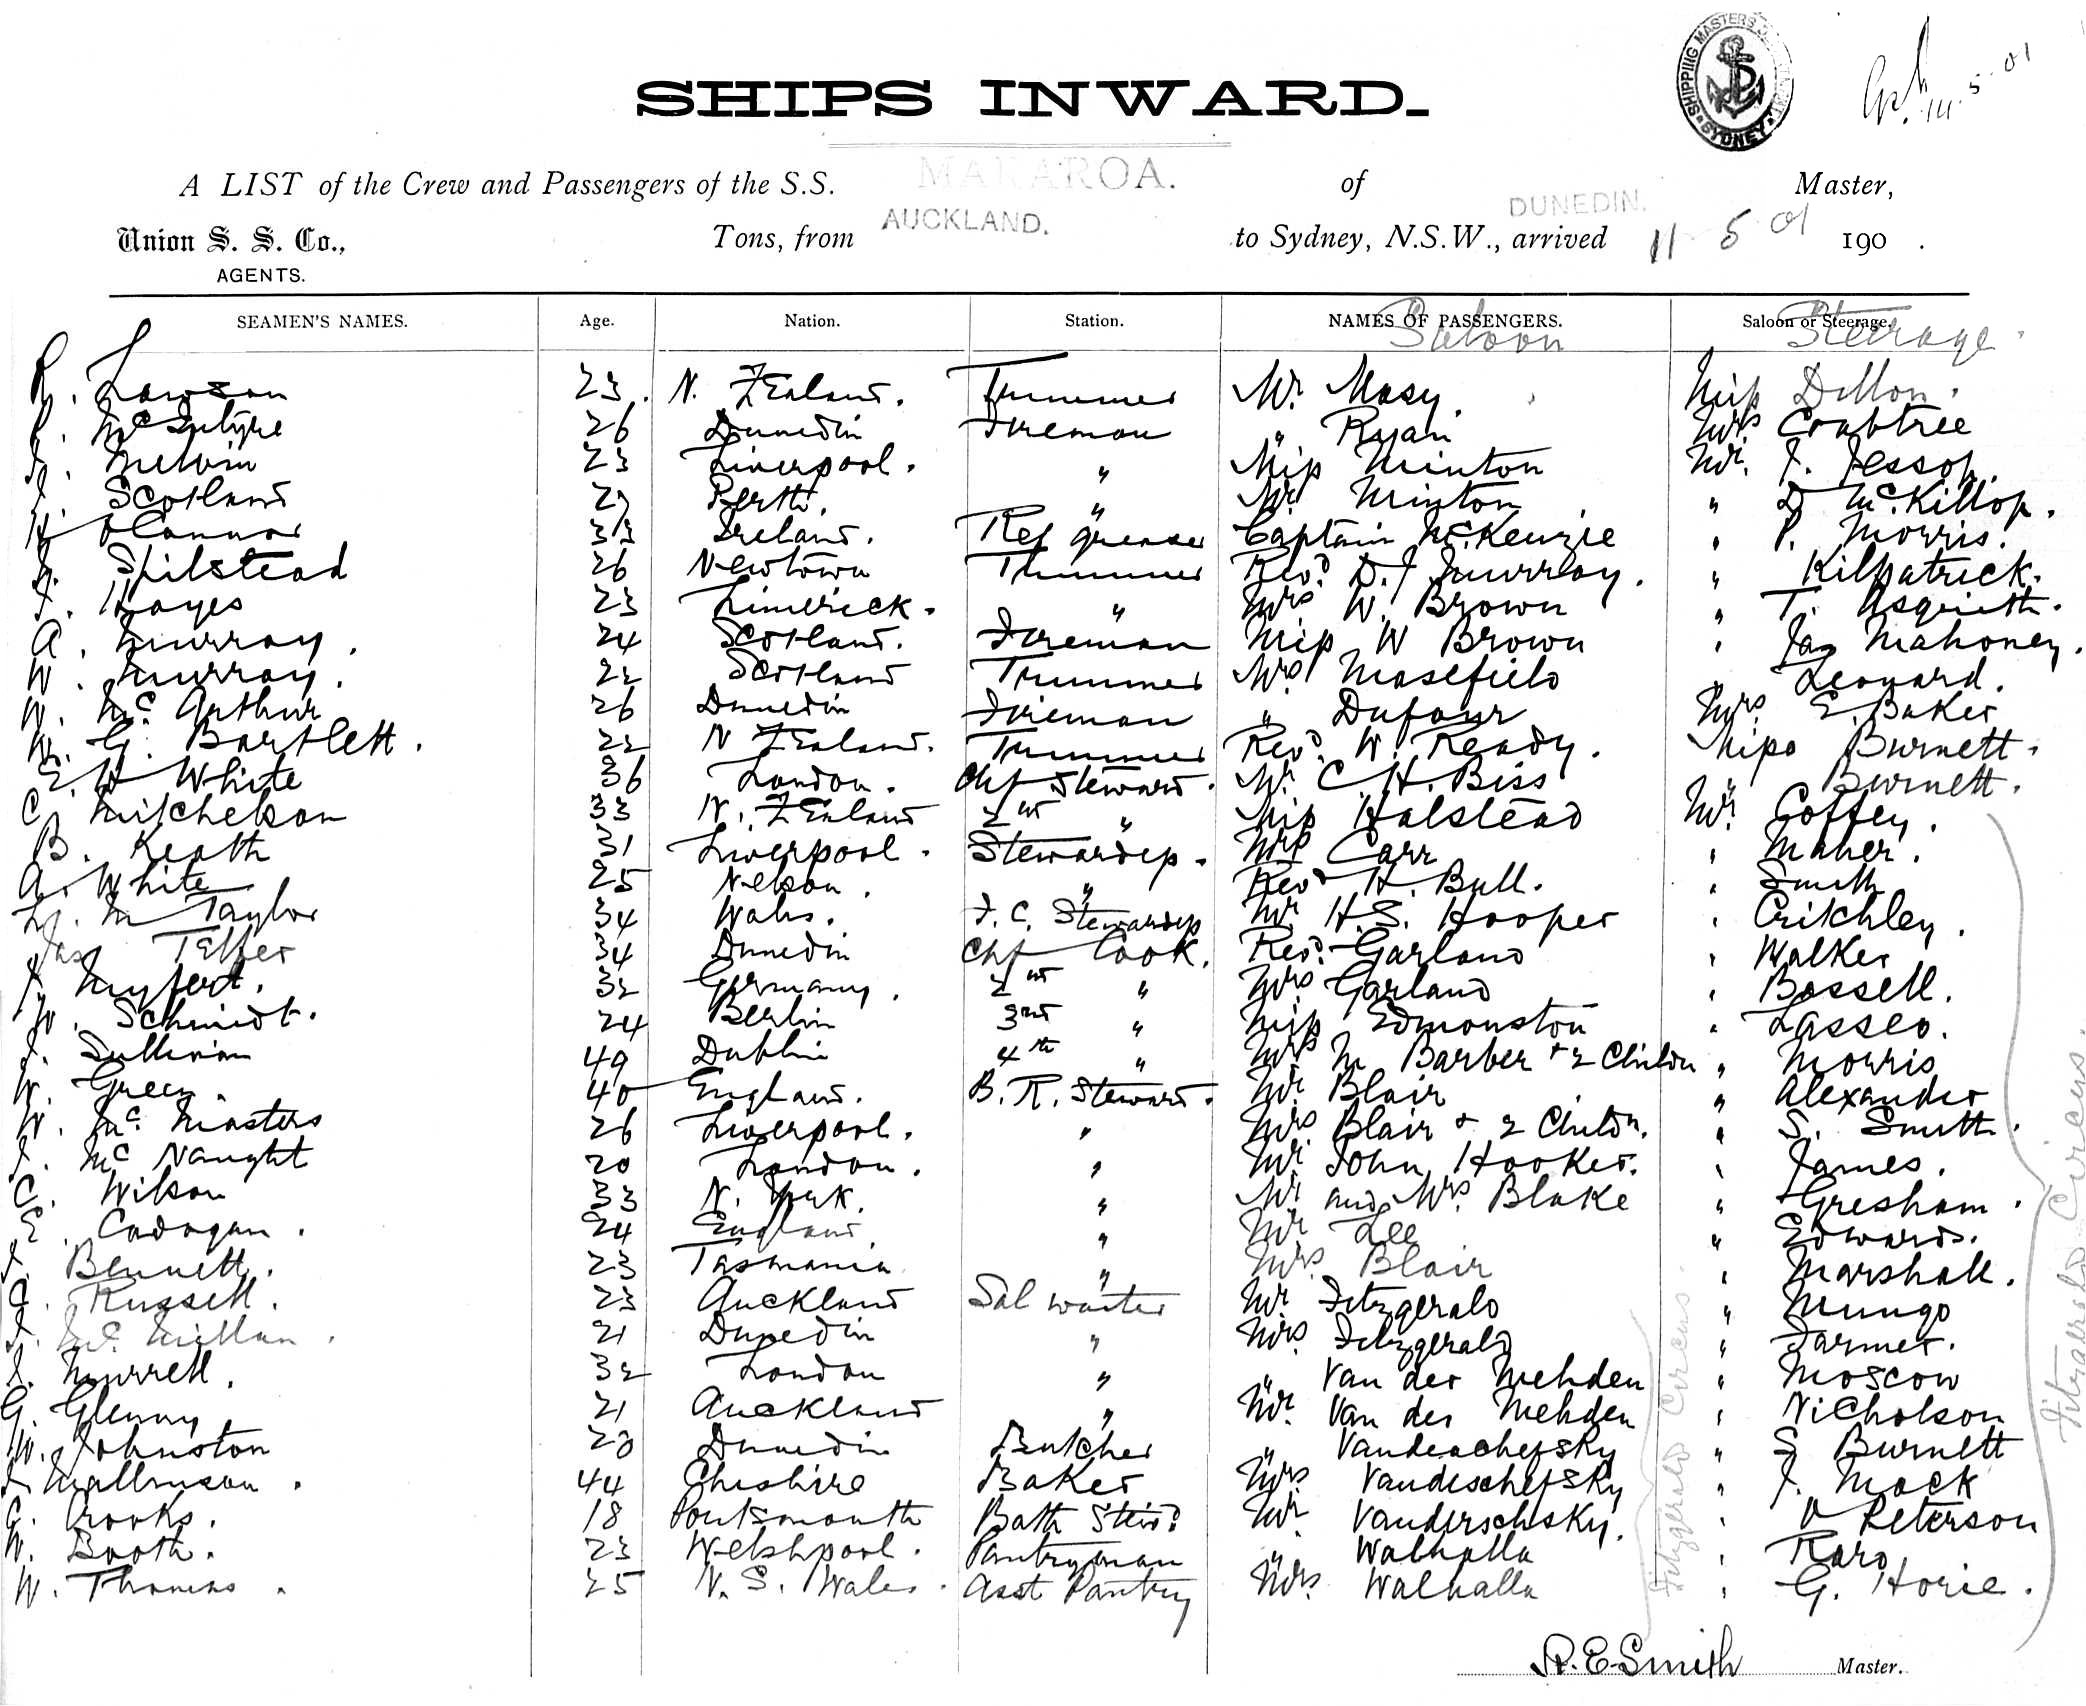 SHIPS INWARD.
SHIPPING MASTERS
SYDNEY
14 5 01
A LIST of the Crew and Passengers of the S.S. MARAROA. of DUNEDIN. Master,
Union S. S. Co., Tons, from AUCKLAND. to Sydney, N.S.W., arrived 11 5 01 190 .
AGENTS.
SEAMEN'S NAMES. Age. Nation. Station. NAMES OF PASSENGERS. Saloon or Steerage.
Saloon Steerage.
R. Lawson 23. N. Zealand. Trimmer Mr. Mosy. Miss Dillon.
McIntyre 26 Dunedin Fireman " Ryan Mrs Crabtree
Melvin 23 Liverpool. " Miss Minton Mr. J. Jessop.
J. Scotland 27 Perth. " Mr Minton " D McKillop.
H O'Connor 33 Ireland. Ref greaser Captain McKenzie " P. Morris.
Spilstead 26 Newtown Trimmer Revd. D. J Murray. " Kilpatrick.
Hayes 23 Limerick. " Mrs W. Brown " T.
A. Murray. 24 Scotland. Fireman Miss W Brown " Jas Mahoney.
W. Murray. 22 Scotland Trimmer Mrs Masefield " Leonard.
W. McArthur 26 Dunedin Fireman " Dufaur Mrs E. Baker
W. G. Bartlett. 22 N Zealand. Trimmer Revd. W. Ready. Misses Burnett.
E. H White 36 London. Chf Steward. Mr. C. H. Biss " Burnett.
C. Mitchelson 33 N. Zealand 2nd " Miss Halstead Mr. Coffey.
B. Keath 31 Liverpool. Stewardess. Mrs Carr " Maher.
A. White 25 Nelson. " Revd H. Bull. " Smith
L. M Taylor 34 Wales. F. C. Stewardess Mr H. S. Hooper " Critchley.
Jas Telfer 34 Dunedin Chf Cook. Revd. Garland " Walker
32 Germany. 2nd " Mrs Garland " Bossell.
W. Schmidt. 24 Berlin 3rd " Miss Edmonston " Lasseo.
J. Sullivan 49 Dublin 4th " Mrs M Barber + 2 Childn " Morris
W. Green. 40 England. B. R. Steward. Mr Blair " Alexander
W. McMasters 26 Liverpool. " Mrs Blair + 2 Childn. " S. Smith.
J. McNaught 20 London. " Mr John Hooker. " James.
C. Wilson 33 N. York. " Mr and Mrs Blake " Gresham.
E. Cadogan. 24 England. " Mr Lee " Edwards.
J. Bennett. 23 Tasmania " Mrs Blair " Marshall.
C. Russell. 23 Auckland Sal waiter Mr Fitzgerald " Mungo
J. McMillan. 21 Dunedin " Mrs. Fitzgerald " Farmer.
J. Murrell. 32 London " " Van der Mehden " Moscow
G. Glenny 21 Auckland " Mr. Van der Mehden " Nicholson
W. Johnston 20 Dunedin Butcher " Vanderschefsky " S Burnett
J Mallinson. 44 Cheshire Baker Mrs Vandeschefsky " J. Mack
C. Crooks. 18 Portsmouth Bath Stewd. Mr. Vanderschsky. " Peterson
W. Booth. 23 Welshpool. Pantryman " Walhalla " Raro
W. Thomas. 25 N. S. Wales. Asst Pantry Mrs. Walhalla " G. Horie.
Fitzgerald Circus.
Fitzgerald Circus.
A. E. Smith Master.